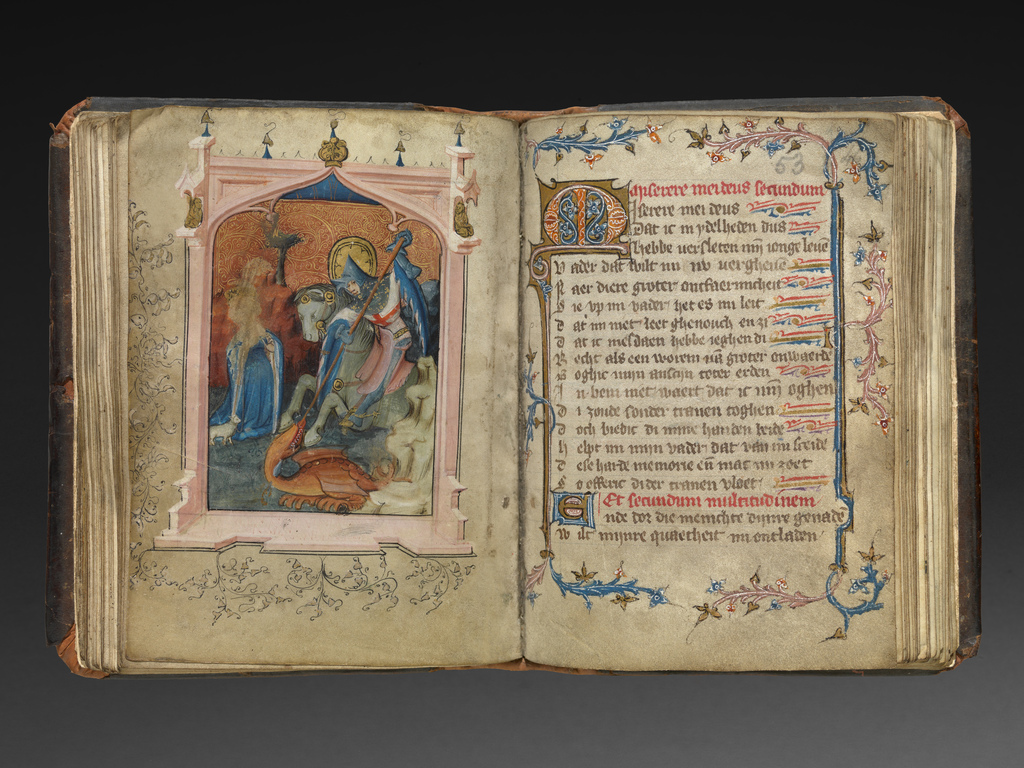 53
Miserere mei deus secundum
Iserere mei deus
Dat ic in ydelheden dus
hebbe versleten mijn ionge leue
Vader dat wilt mi nv vergheue
Naer diere groter ontfaermicheit
Sie vp mi vader het es mi leit
Dat mi met leet ghenouch en zi
Dat ic mesdaen hebbe ieghen di
Recht als een worem groter onwaerde
Boghic mijn anscijn toter erden
In bem niet waert dat ic mijn oghen
Di zoude sonder tranen toghen
Doch hebic di mine handen beide
helpt mi mijn vader dat van mi sceide
Dese harde memorie en mat mi zoet
So offeric di der tranen vloet
Et secundum multitudinem
Ende dor die menichte dijnre genade
wilt mijnre quaetheit mi ontladen